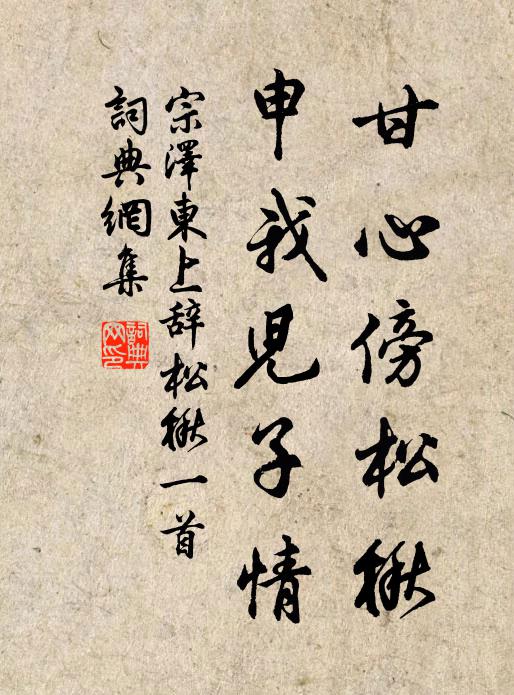 甘心傍松楸
申我兒子情
宗澤東上辞松楸一首
詞典網集
詞典
网印